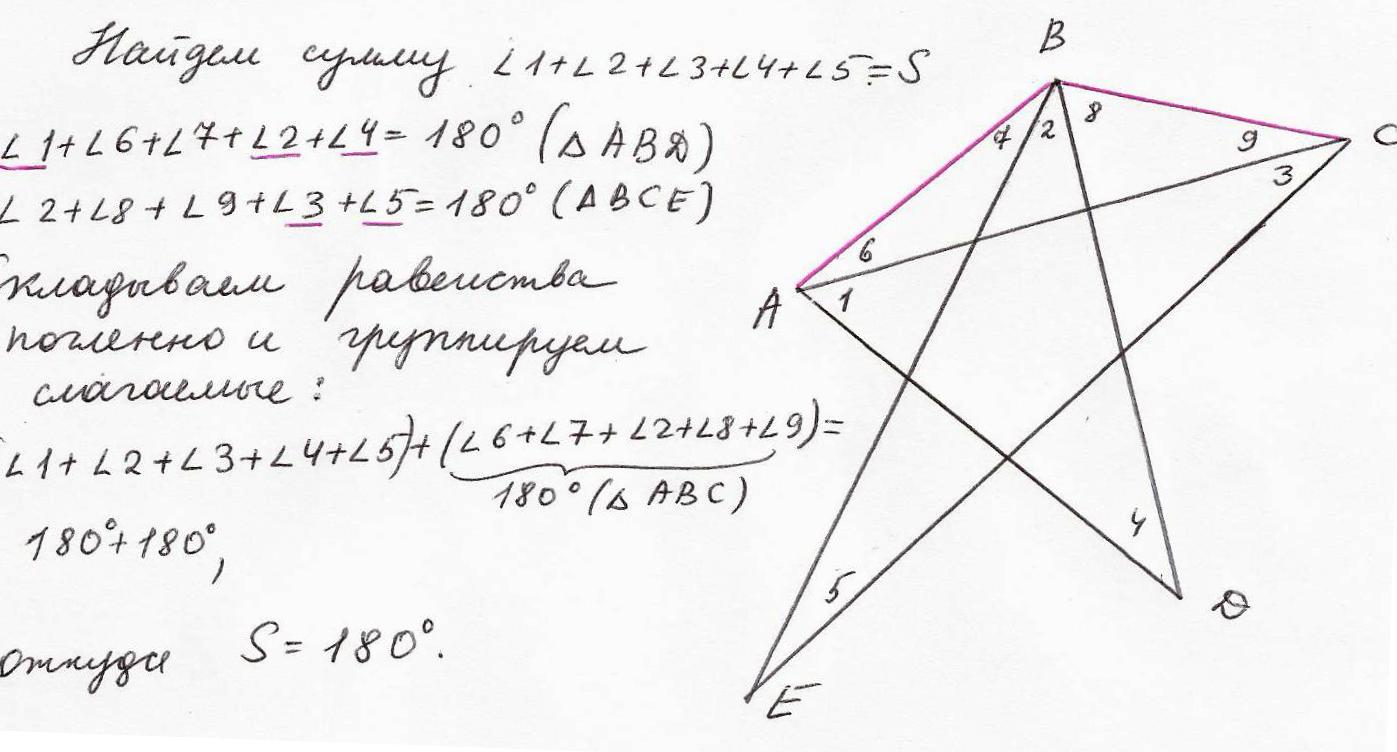 Найдем сумму ∠1+∠2+∠3+∠4+∠5=S
∠1+∠6+∠7+∠2+∠4=180° (△ABD)
∠2+∠8+∠9+∠3+∠5=180° (△BCE)
Складываем равенства
почленно и группируем
слагаемые:
(∠1+∠2+∠3+∠4+∠5)+(∠6+∠7+∠2+∠8+∠9)=
180° (△ABC)
180°+180°,
откуда S=180°.
B
7 2 8
9
C
3
6
A
1
4
5
D
E